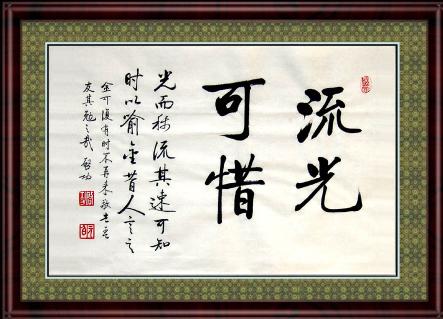 流光
可惜
光而称流其速可知
时以喻金昔人言之
金可复有时不再来敬告吾
友其勉之哉 启功